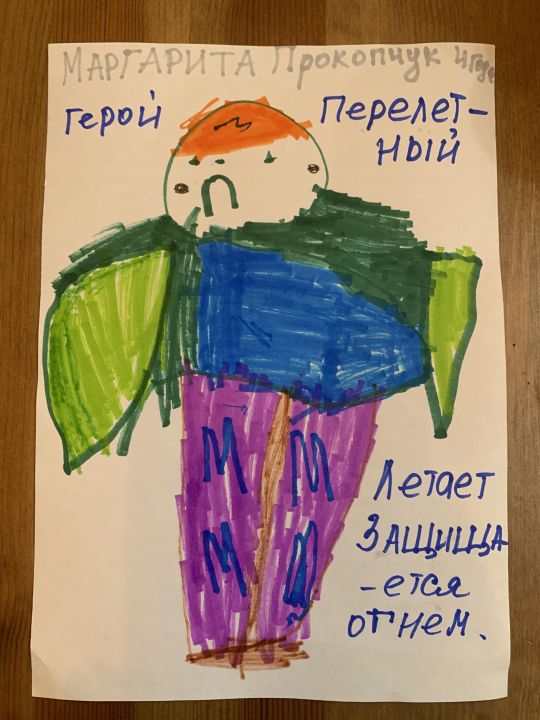 МАРГАРИТА ПРОКОПЧУК 4 года
ГЕРОЙ ПЕРЕЛЕТ-
НЫЙ
М
М М
М
Летает
ЗАЩИЩА
-ется
огнем.